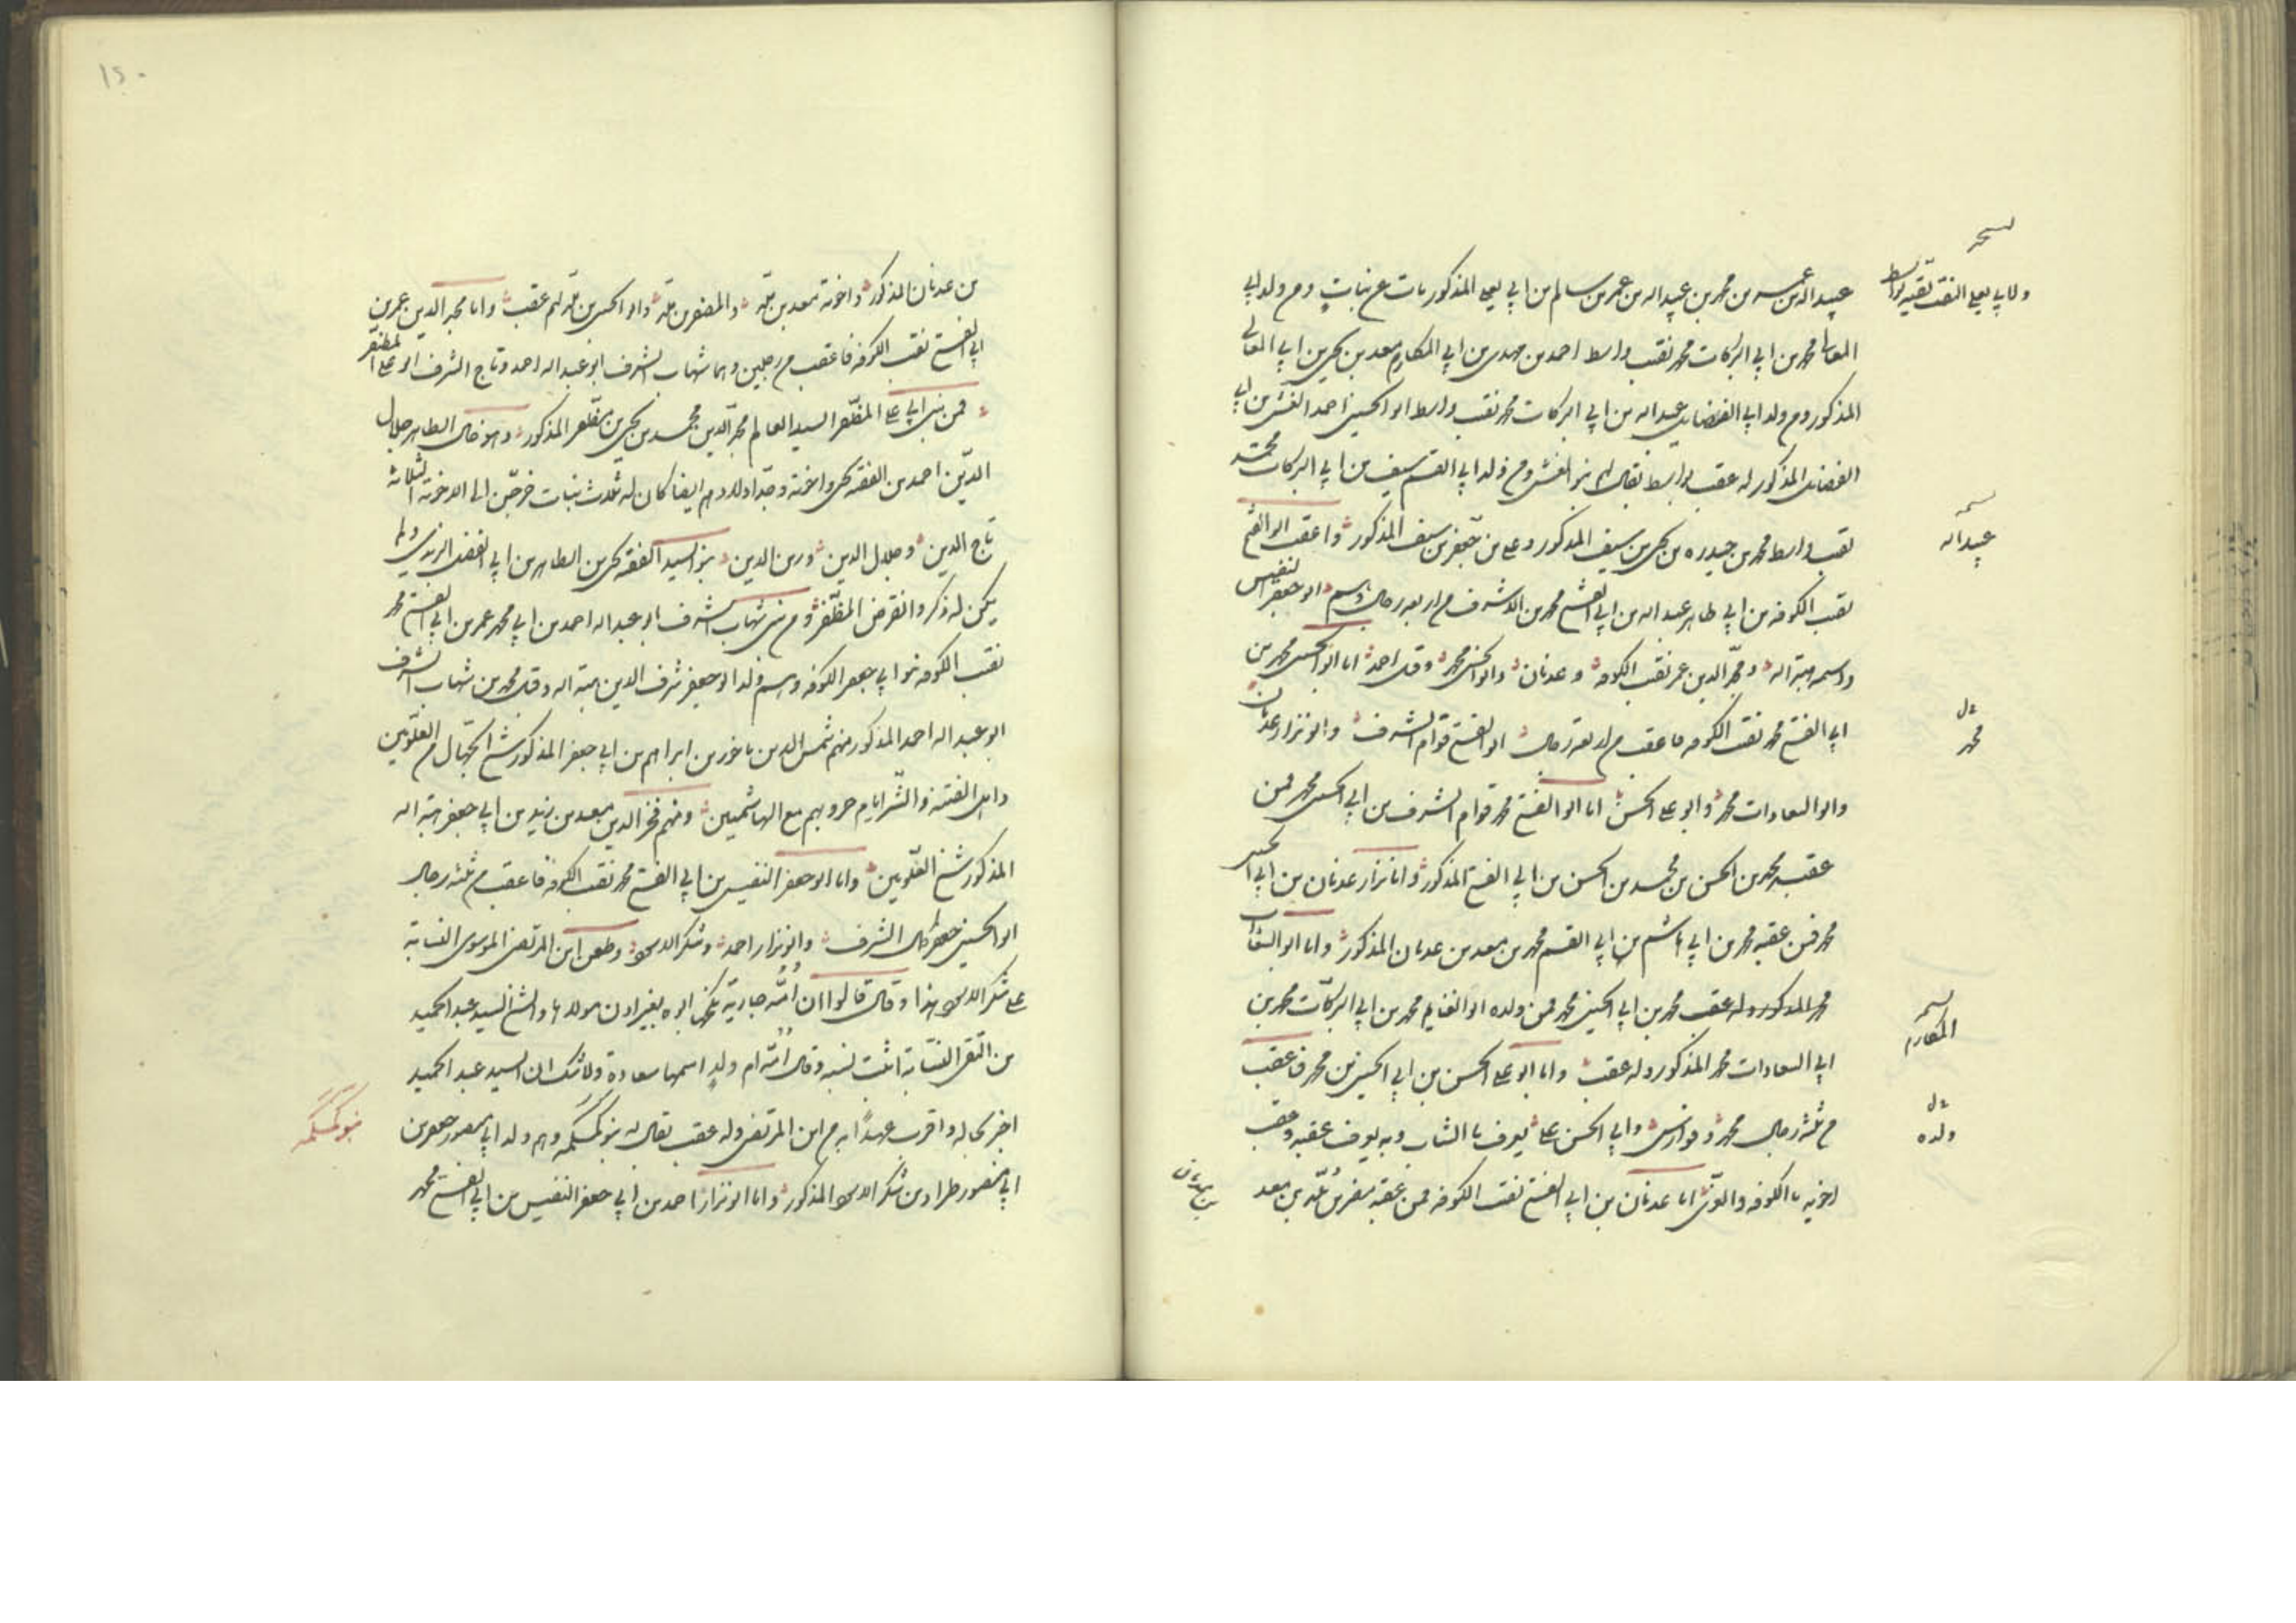 عبيد الله بن محمد بن عبيد الله بن عمر بن سالم بن ابي يعلى المذكور مات عن بنات ومن ولد ابي
المعالي محمد بن ابي البركات محمد نقيب واسط احمد بن مهدي بن ابي المكارم معد بن يحيى بن ابي المعالي
المذكور ومن ولد ابي الفضايل عبد الله بن ابي البركات محمد نقيب واسط ابو الحسين احمد بن ابي
الفضايل المذكور له عقب بواسط يقال لهم ومن ولد ابي القسم سيف بن ابي البركات محمد
نقيب واسط محمد بن حيدره بن يحيى بن سيف المذكور وعلي بن جعفر بن سيف المذكور واعقب ابو الفتح
نقيب الكوفه بن ابي طاهر عبد الله بن ابي الفتح محمد بن الاشرف من اربعه رجال ابو جعفر النفيس
واسمه هبة الله ومجد الدين عمر نقيب الكوفه وعدنان وابو الحسين محمد وقيل احمد اما ابو الحسين محمد بن
ابي الفتح محمد نقيب الكوفه فاعقب من اربعة رجال ابو الفتح قوام الشرف وابو نزار عدنان
وابو السعادات محمد وابو علي الحسن اما ابو الفتح محمد قوام الشرف بن ابي الحسين محمد فمن
عقبه محمد بن الحسن بن محمد بن الحسن بن ابي الفتح المذكور واما نزار عدنان بن ابي الحسين
محمد فمن عقبه محمد بن ابي هاشم بن ابي القسم محمد بن معد بن عدنان المذكور واما ابو السعادات
محمد المذكور وله عقب محمد بن ابي الحسين محمد فمن ولده ابو الغنايم محمد بن ابي البركات محمد بن
ابي السعادات محمد المذكور وله عقب واما ابو علي الحسن بن ابي الحسين بن محمد فاعقب
من ثلثه رجال محمد وفوارس وابي الحسن علي يعرف بالشاب وبه يعرف عقبه وعقب
اخويه بالكوفه والغري اما عدنان بن ابي الفتح نقيب الكوفه فمن عقبه بن معد
نسخه
ولابي يعلى النقيب بقيه بواسط
نسخه
عبيد الله
محمد
نسخه
المكارم
ولده
بن عدنان
١٥٠
بن عدنان المذكور واخوته معد بن والمظفر بن وابو الحسين بن لهم عقب واما مجد الدين عمر بن
ابي الفتح نقيب الكوفه فاعقب من رجلين وهما شهاب الشرف ابو عبد الله احمد وتاج الشرف ابو علي المظفر
فمن بني ابي علي المظفر السيد العالم مجد الدين محمد بن يحيى بن مظفر المذكور وهو خال الطاهر جلال
الدين احمد بن الفقيه يحيى واخوته وجد اولادهم ايضا كان له ثلاث بنات خرجن الى الاخوة الثلاثة
تاج الدين وجلال الدين وزين الدين بنو السيد الفقيه يحيى بن الطاهر بن ابي الفضل الزيدي ولم
يكن له ذكر وانقرض المظفر ومن بني شهاب الشرف ابو عبد الله احمد بن ابي محمد عمر بن ابي الفتح محمد
نقيب الكوفه بنو ابي جعفر بالكوفه وهم ولد ابو جعفر شرف الدين هبة الله وقيل محمد بن شهاب الشرف
ابو عبد الله احمد المذكور منهم شمس الدين بن ابراهيم بن ابي جعفر المذكور شيخ من العلويين
واهل الفتنة والشر ايام حروبهم مع الهاشميين ومنهم فخر الدين معد بن زيد بن ابي جعفر هبة الله
المذكور شيخ العلويين واما ابو جعفر النفيس بن ابي الفتح محمد نقيب الكوفه فاعقب من ثلثه رجال
ابو الحسين جعفر كمال الشرف وابو نزار احمد وشكر الاسود وطعن ابن المرتضى الموسوي النسابة
على شكر الاسود هذا وقال قالوا ان امه جارية نكحها ابوه بغير اذن مولاها والشيخ السيد عبد الحميد
بن التقي النسابة اثبت نسبه وقال امه ام ولد اسمها سعادة ولا شك ان السيد عبد الحميد
اخبر بحاله واقرب عهدا به من ابن المرتضى وله عقب يقال له بنو كمكمه وهم ولد ابي منصور جعفر بن
ابي منصور طراد بن شكر الاسود المذكور واما ابو نزار احمد بن ابي جعفر النفيس بن ابي الفتح محمد
بنو كمكمه